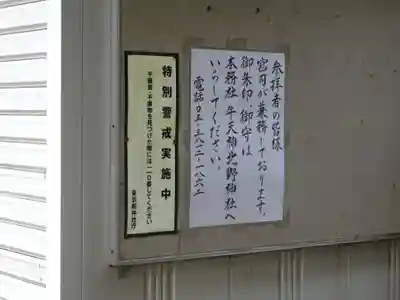 参拝者の皆様
宮司が兼務しております。
御朱印、御守は
本務社 牛天神北野神社へ
いらしてください。
電話 03-3812-1862
特別警戒実施中
不審者・不審物を見つけた際には一一〇番してください
東京都神社庁